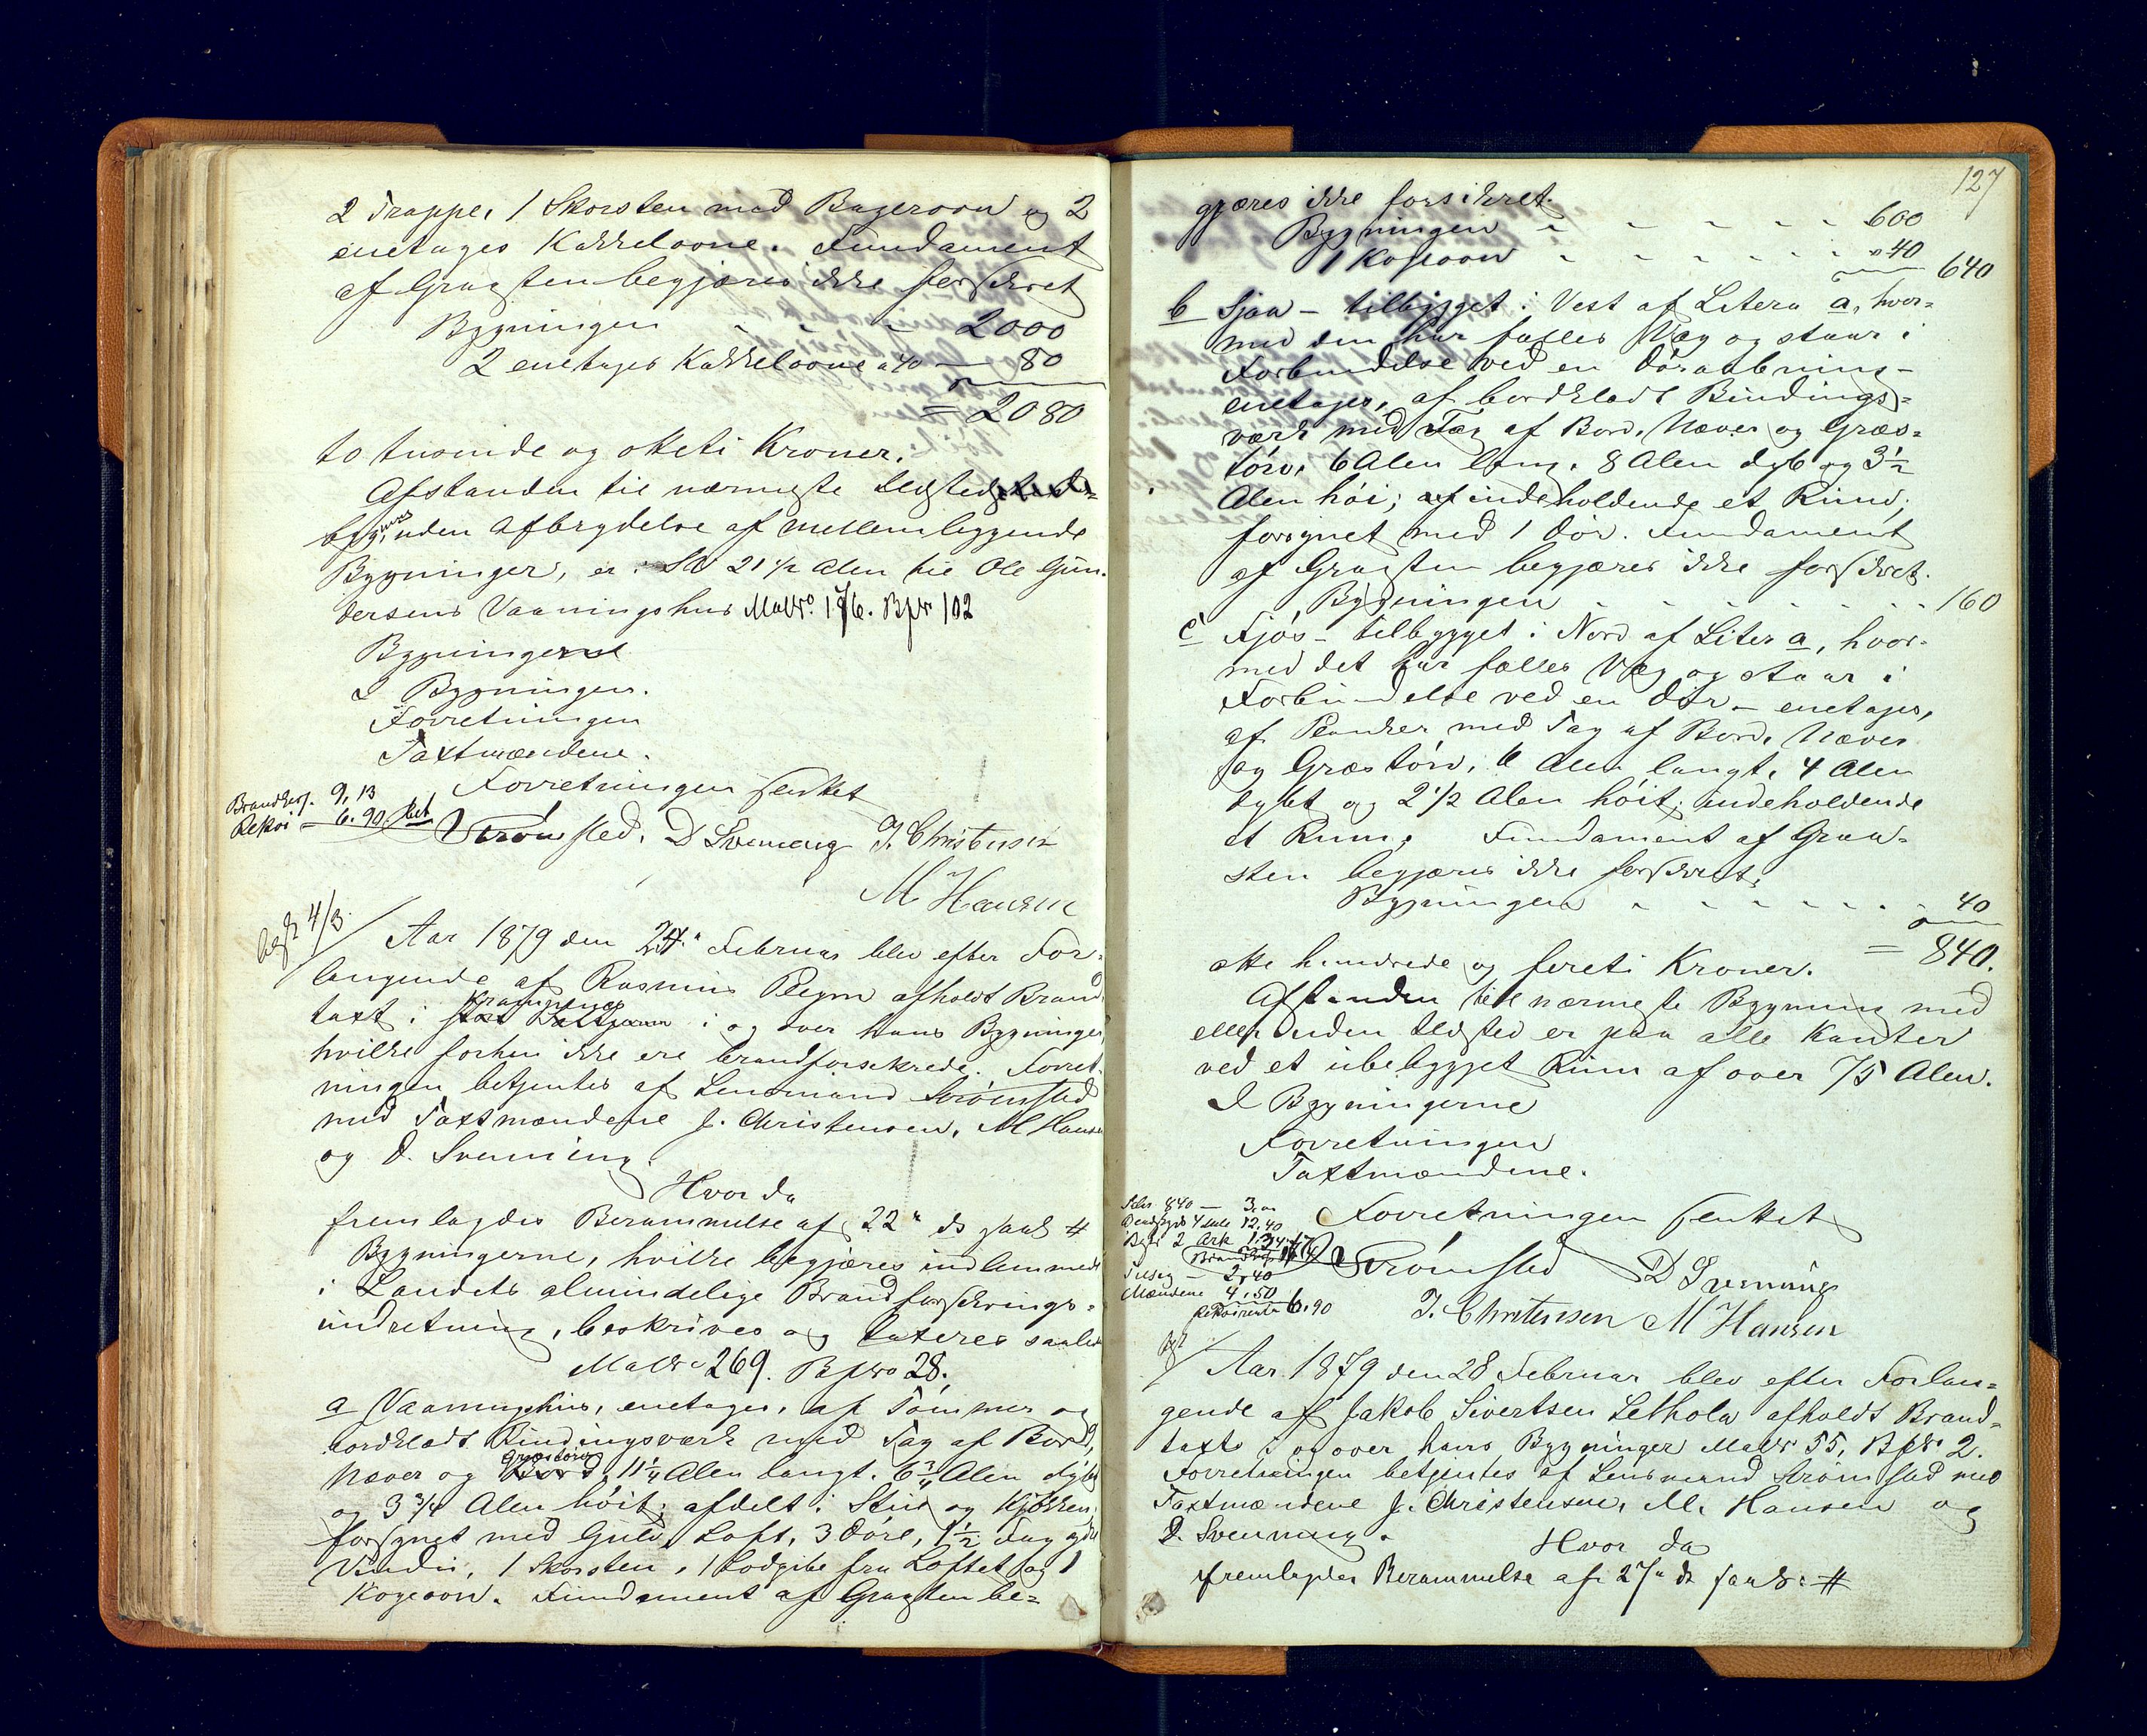 2 Trappe, 1 Skorsten med Bagerovn og 2
enetages Kakkelovne. Fundament
af Graasten begjæres ikke forsikret
Bygningen - - - 2000
2 enetages Kakkelovne a 40 - 80
= 2080
to tusinde og otteti Kroner.
Afstanden til nærmeste Ildsted
uden Afbrydelse af mellemliggende
Bygninger, er i SV 21 1/2 Alen til Ole Gun-
dersens Vaaningshus MatNo. 176. BpNo 102
Bygningerne
I Bygningen.
Forretningen
Taxtmændene.
Forretningen sluttet
Brandkas. 9,13
Rekvi - 6.90
Strømsted. D Svenning J. Christensen
M Hansen
4/3.
Aar 1879 den 24de Februar blev efter For-
langende af Rasmus Pleym afholdt Brand-
taxt i Krampenæs i og over hans Bygninger
hvilke forhen ikke ere brandforsikrede. Forret-
ningen betjentes af Lensmand Strømsted
med Taxtmændene J. Christensen, M Hansen
og D. Svenning.
Hvor da
fremlagdes Berammelse af 22de ds saal. #
Bygningerne, hvilke begjæres indlemmede
i Landets almindelige Brandforsikrings-
indretning, beskrives og taxeres saaledes
MatNo 269. BpNo 28.
a Vaaningshus, enetages, af Tømmer og
bordklædt Bindingsværk med Tag af Bord,
Næver og Græstørv, 11 1/4 Alen langt. 6 3/4 Alen dybt
og 3 3/4 Alen høit; afdelt i Stue og Kjøkken,
forsynet med Gulv, Loft, 3 Døre, 1 1/2 Fag
Vindu, 1 Skorsten, 1 Lodpibe fra Loftet og 1
Kogeovn. Fundament af Graasten be=
127
gjæres ikke forsikret.
Bygningen - - - - - 600
1 Kogeovn - - - - - - " 40
640
b Sjaa - tilbygget i Vest af Litera a, hvor=
med den har fælles Væg og staar i
Forbindelse ved en Døraabning -
enetages, af bordklædt Bindings=
værk med Tag af Bord, Næver og Græs=
tørv, 6 Alen lang, 8 Alen dyb og 3 1/2
Alen høi; indeholdende et Rum;
forsynet med 1 Dør. Fundament
af Graasten begjæres ikke forsikret.
Bygningen - - - - - - 160
c Fjøs - tilbygget i Nord af Liter a, hvor-
med det har fælles Væg og staar i
Forbindelse ved en Dør - enetages,
af Planker med Tag af Bord, Næver
og Græstørv, 6 Alen langt, 4 Alen
dybt og 2 1/2 Alen høit; indeholdende
et Rum; Fundament af Graa-
sten begjæres ikke forsikret;
Bygningen - - - - - - 40
= 840.
otte hundrede og fireti Kroner.
Afstanden til nærmeste Bygning med
eller uden Ildsted er paa alle Kanter
ved et ubebygget Rum af over 75 Alen.
I Bygningerne
Forretningen
Taxtmændene.
840 - 3,00
12,40
2 Ark
Tilsag - 2,40
Mændene 4,50
Rekvirenten 6,90
Forretningen sluttet
Strømsted D Svenning
J. Christensen M Hansen
Aar 1879 den 28 Februar blev efter Forlan=
gende af Jakob Sivertsen Lethola afholdt Brand-
taxt i og over hans Bygninger MatNo 55, BpNo 2.
Forretningen betjentes af Lensmand Strømsted med
Taxtmændene J. Christensen, M. Hansen og
D. Svenning.
Hvor da
fremlagdes Berammelse af 27de ds saal. #